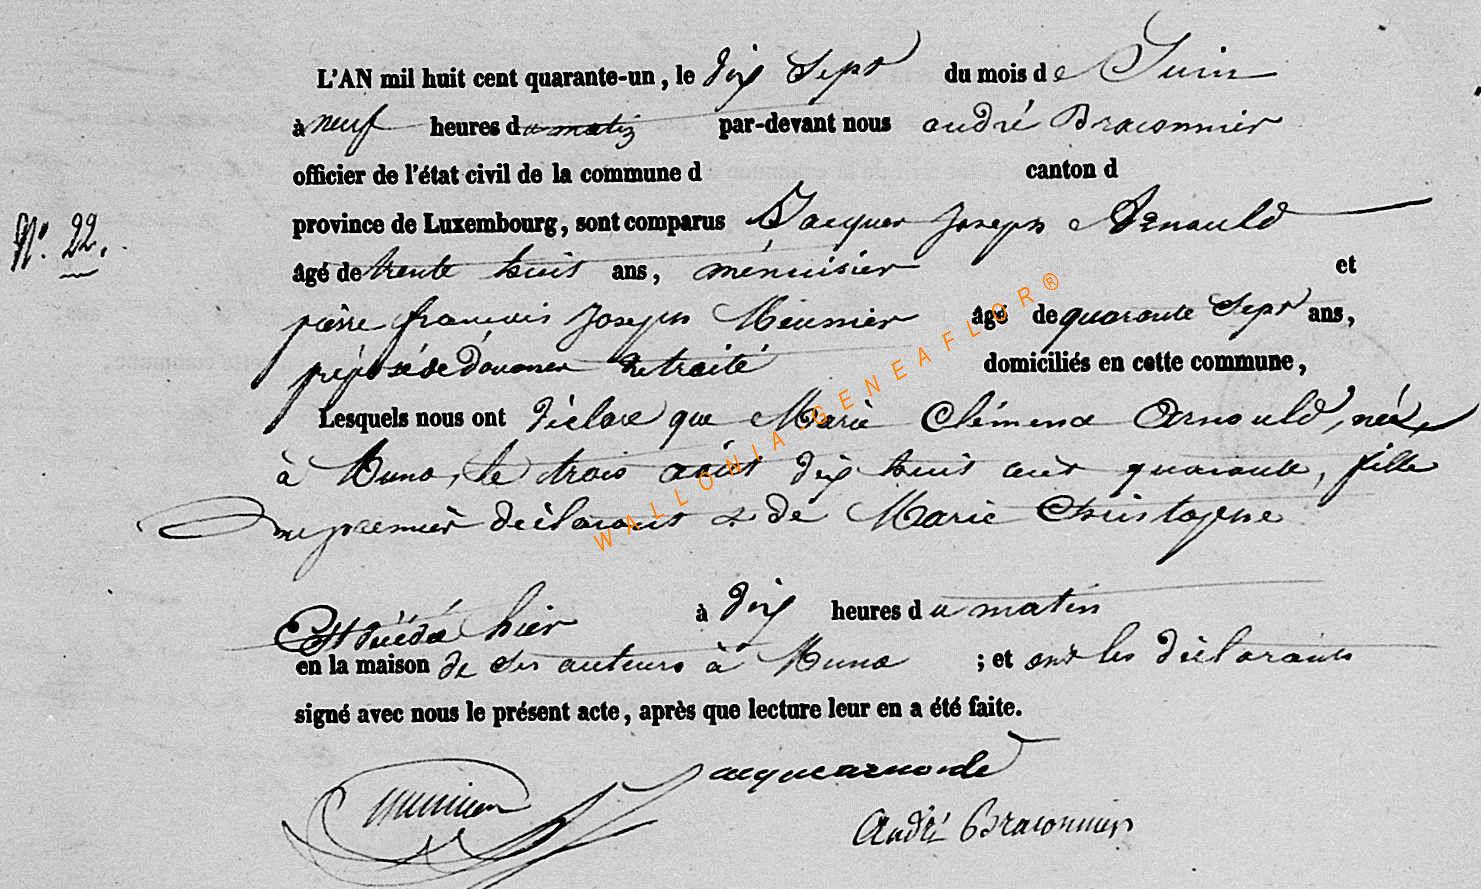 L'AN mil huit cent quarante-un, le dix Sept du mois de Juin
à neuf heures du matin par-devant nous andré Braconnier
officier de l'état civil de la commune d canton d
N° 22.
province de Luxembourg, sont comparus Jacques Joseph Arnould
âgé de trente huit ans, ménuisier et
pierre françois Joseph Meunier âgé de quarante Sept ans,
préposé de douanes retraité domiciliés en cette commune,
Lesquels nous ont déclaré que Marie Clémence Arnould, née
à Muno, le trois août dix huit cent quarante, fille
du premier déclarant & de Marie Christophe
Est décédée hier à dix heures du matin
en la maison de ses auteurs à Muno ; et ont les déclarants
signé avec nous le présent acte, après que lecture leur en a été faite.
Jacque arnould
meunier
André Braconnier
WALLONIA GENEAFLOR®